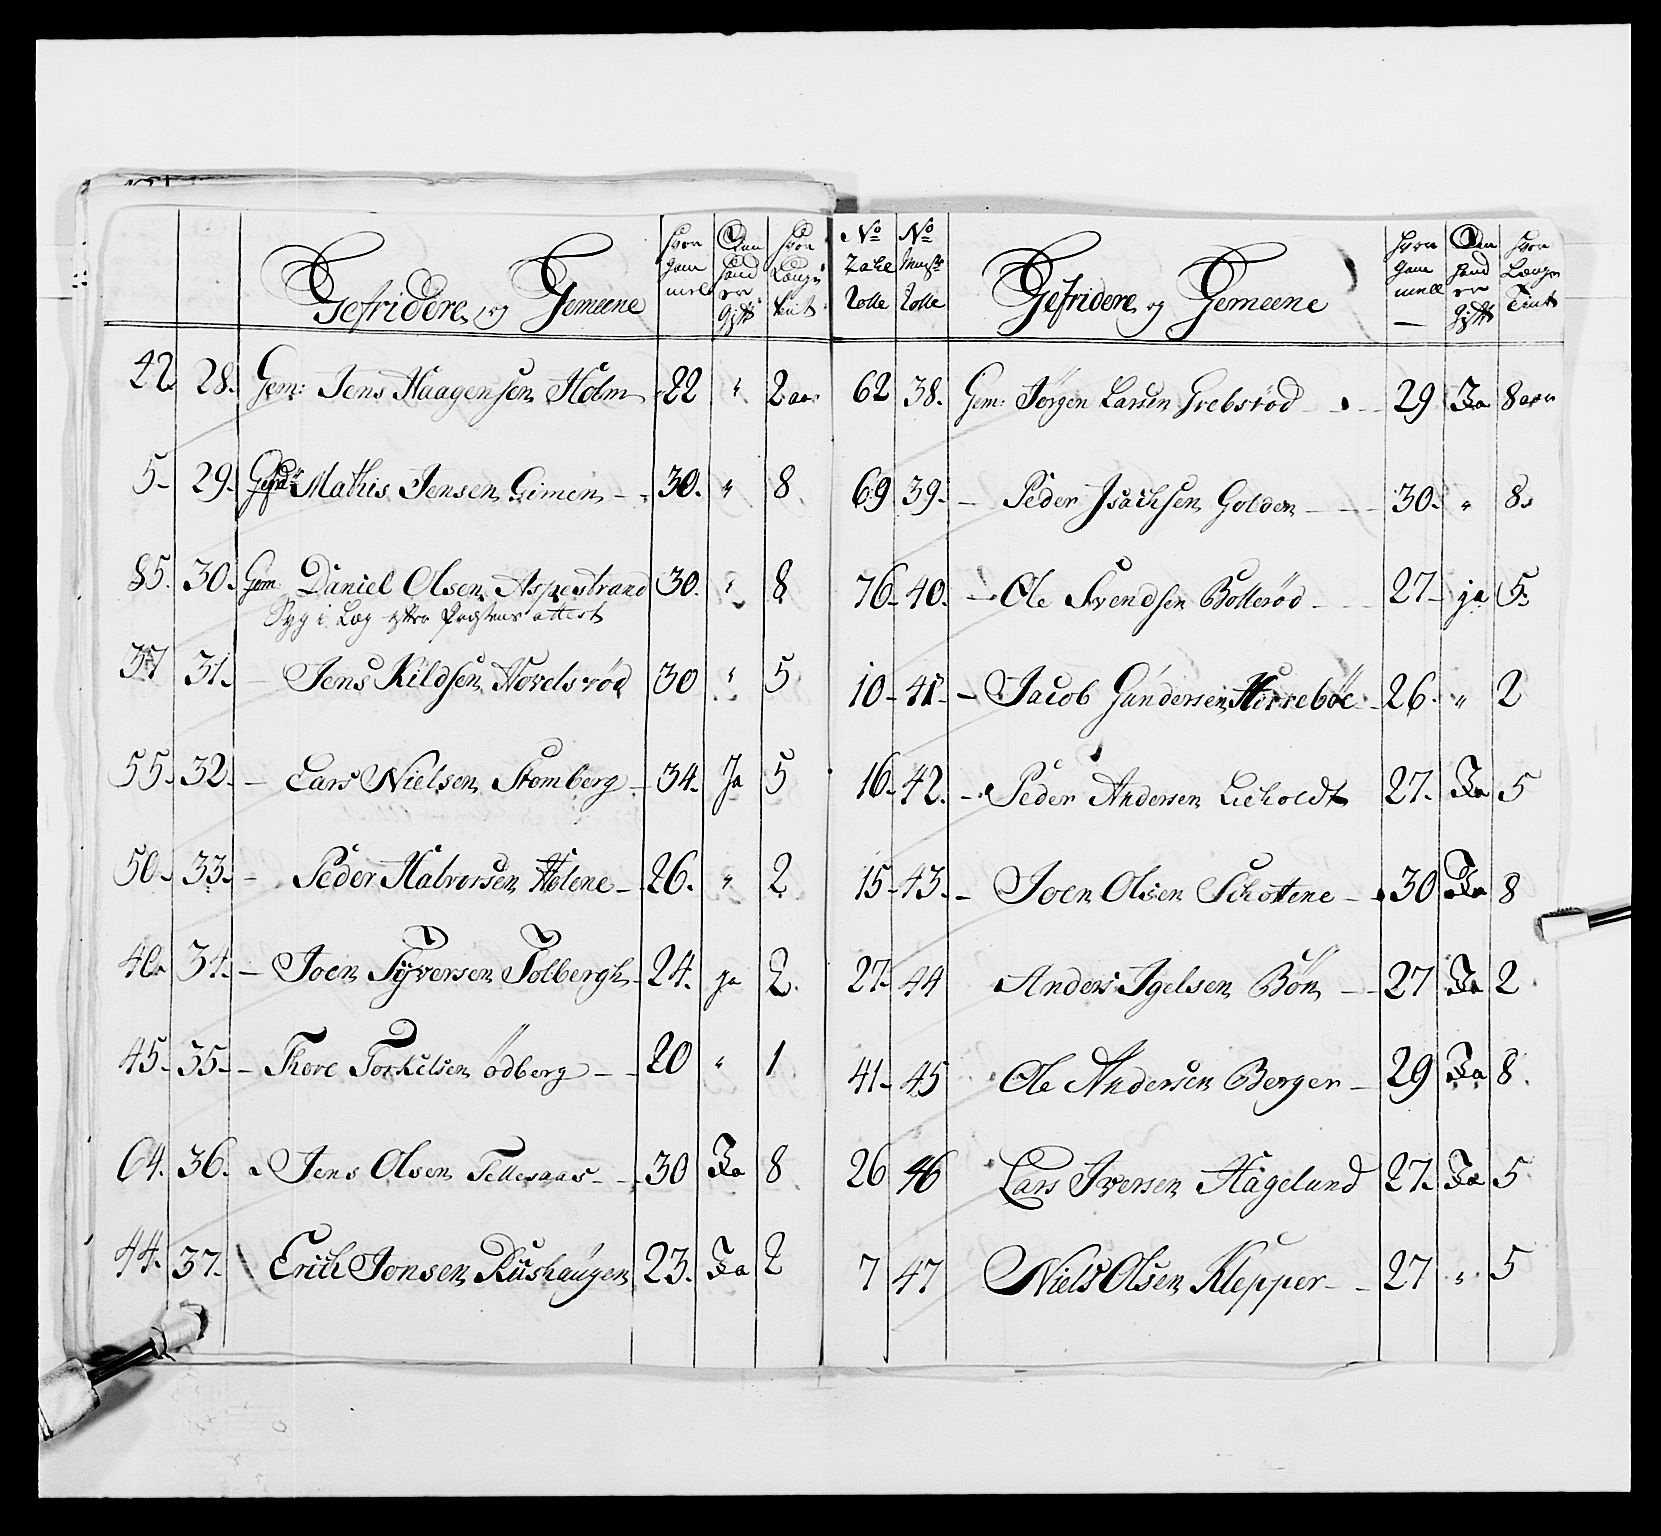 Gefridere og Gemeene | Hvor Gam mell | Om hand er Gift | Hvor Længe tient
42. 28. Gem: Jens Haagensen Holm 22 " 2 aar
5- 29. Gefrd: Mathis Jensen Gimen - 30. " 8
85. 30. Gem: Daniel Olsen Aspestrand 30. " 8
Syg i Læg efter Præstens attest
37 31. - Jens Kildsen Hovelsröd 30 " 5
55. 32. - Lars Nielsen Stomberg - 34. Ja 5
50. 33. - Peder Halvorsen Holene - 26. " 2
40. 34. - Joen Syversen Solbergh - 24. ja 2.
45. 35. - Thore Torkelsen Ödberg - 20 " 1
64. 36. Jens Olsen Tellesaas - 30 Ja 8
44. 37. Erich Jonsen Rushaugen 23. Ja 2
No Zahl Rolle | No Munst: Rolle | Gefridere og Gemeene | Hvor Gam mell | Om hand er Gift | Hvor Længe Tient
62 38. Gem: Jörgen Larsen Grebsröd - 29 Ja 8 aar
69 39. - Peder Isachsen Golden - 30. " 8.
76. 40. - Ole Svendsen Bolleröd - 27 ja 5.
10. 41. - Jacob Gundersen Herreböe - 26. " 2
16. 42. - Peder Andersen Lieholdt 27. Ja 5
15. 43. - Joen Olsen Schottene - 30 Ja 8
27. 44 Anders Igelsen Bön - 27 Ja 2
41. 45 Ole Andersen Berger - 29 Ja 8.
26 46 Lars Iversen Hagelund 27. Ja 5
7 47 Niels Olsen Klepper - 27 " 5